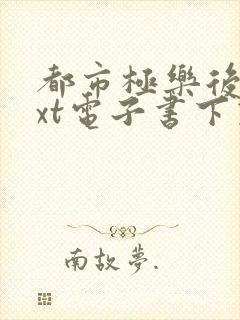 都市極樂後
xt電子書下
南故夢.